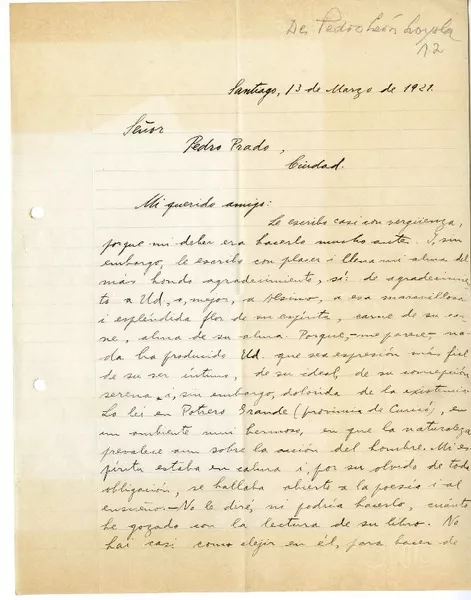 De Pedro León Loyola
12
Santiago, 13 de Marzo de 1921.
Señor
Pedro Prado,
Ciudad.
Mi querido amigo:
Le escribo casi con vergüenza,
porque mi deber era hacerlo mucho antes. I, sin
embargo, le escribo con placer i llena mi alma del
mas hondo agradecimiento, sí: de agradecimien-
to a Ud., o, mejor, a Alsino, a esa maravillosa
i espléndida flor de su espíritu, carne de su car-
ne, alma de su alma. Porque,-me parece,- na-
da ha producido Ud. que sea espresión más fiel
de su ser íntimo, de su ideal, de su concepción
serena i, sin embargo, dolorida de la existencia.
Lo leí en Potrero Grande (provincia de Curicó), en
un ambiente mui hermoso, en que la naturaleza
prevalece aun sobre la acción del hombre. Mi es-
píritu estaba en calma i, por su olvido de toda
obligación, se hallaba abierto a la poesía i al
ensueño.- No le diré, ni podría hacerlo, cuánto
he gozado con la lectura de su libro. No
hai casi como elejir en él, para hacer de